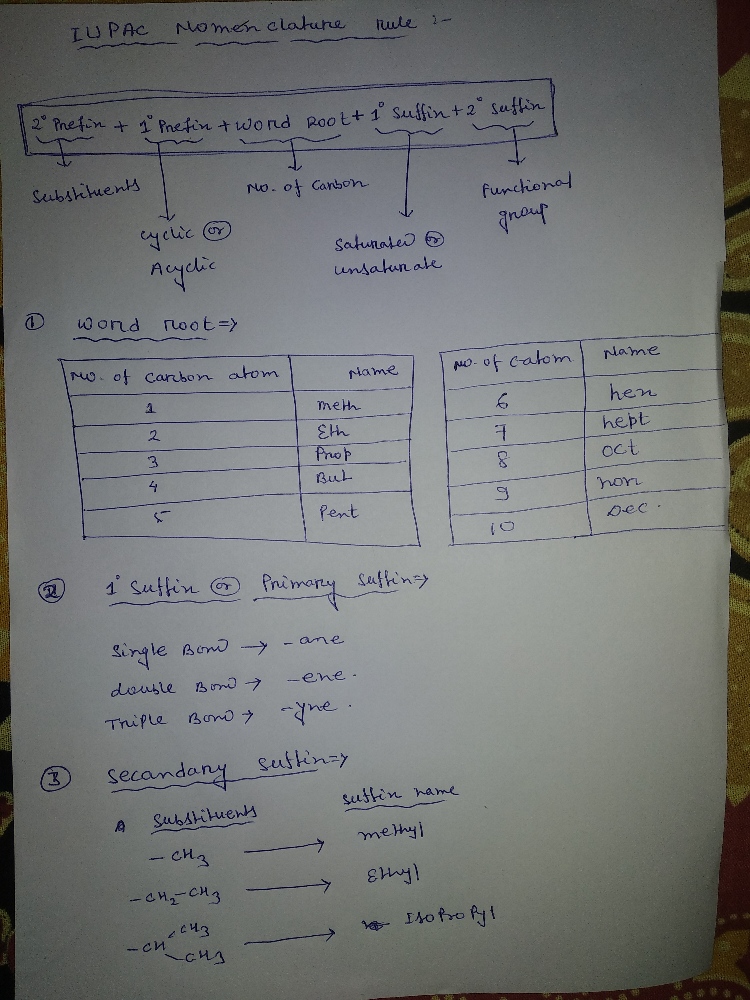 IUPAC Nomenclature rule :-
2° Prefix + 1° Prefix + word Root + 1° Suffix + 2° Suffix
Substituents
No. of Carbon
Functional
group
cyclic or
Acyclic
Saturated or
unsaturate
① word root =>
No. of carbon atom Name
1 meth
2 Eth
3 Prop
4 But
5 Pent
No. of C-atom Name
6 hex
7 hept
8 oct
9 non
10 Dec.
② 1° Suffix or Primary Suffix =>
Single Bond → -ane
double Bond → -ene.
Triple Bond → -yne.
③ Secandary Suffix =>
A Substituents Suffix name
-CH3 → methyl
-CH2-CH3 → Ethyl
-CH CH3 CH3 → Isopropyl